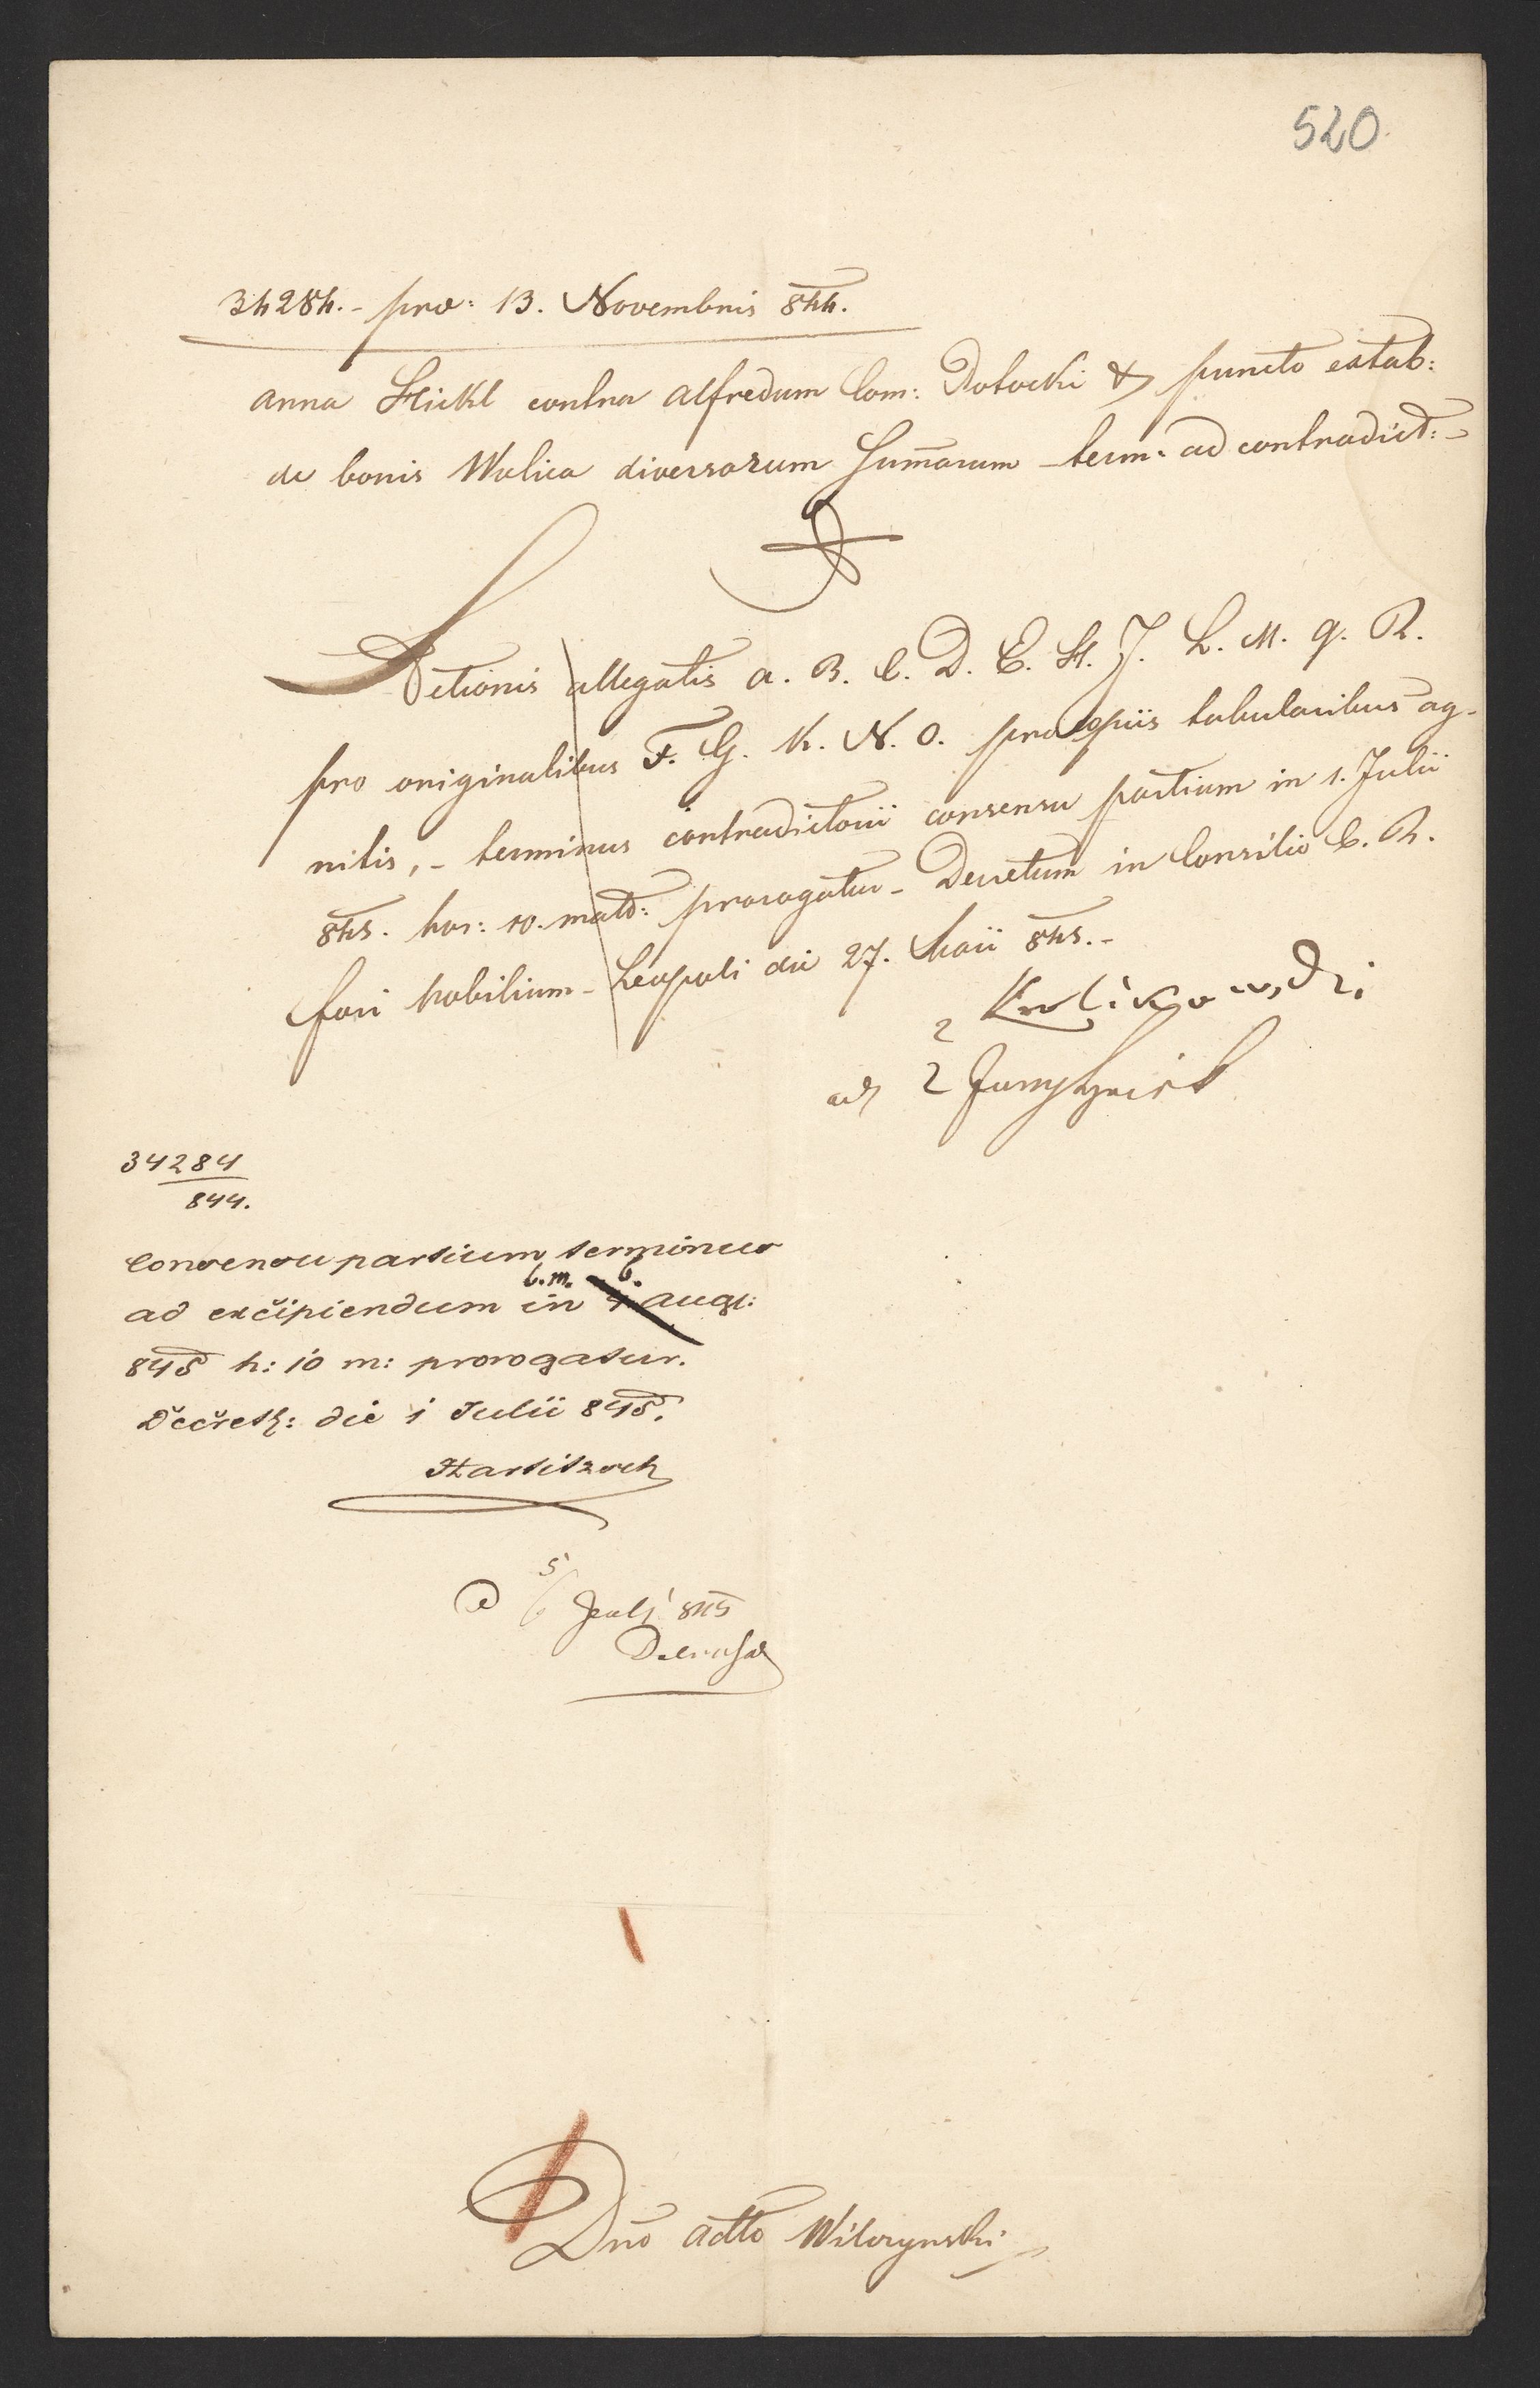 520.
34284. - prae: 13. Novembris 844.
Anna Hickl contra Alfredum Com: Potocki & puncto extab:
de bonis Wulica diversarum Summarum - term. ad contradict: -
Actionis allegatis A. B. C. D. E. H. J. L. M. Q. R.
pro originalibus F. G. K. N. O. pro copiis tabularibus ag-
nitis, - terminus contradictorii consensu partium in 1. Julii
845. hor: 10. mat: prorogatur - Decretum in Consilio C. R.
fori Nobilium - Leopoli die 27. Maii 845. -
34284
844.
Consensu partium terminus
ad excipiendum in b. m. 6. Aug:
845 h: 10 m: prorogatur.
Decret: die 1 Julii 845.
5/6 Julj 845
Dno Adtto Wilczynski